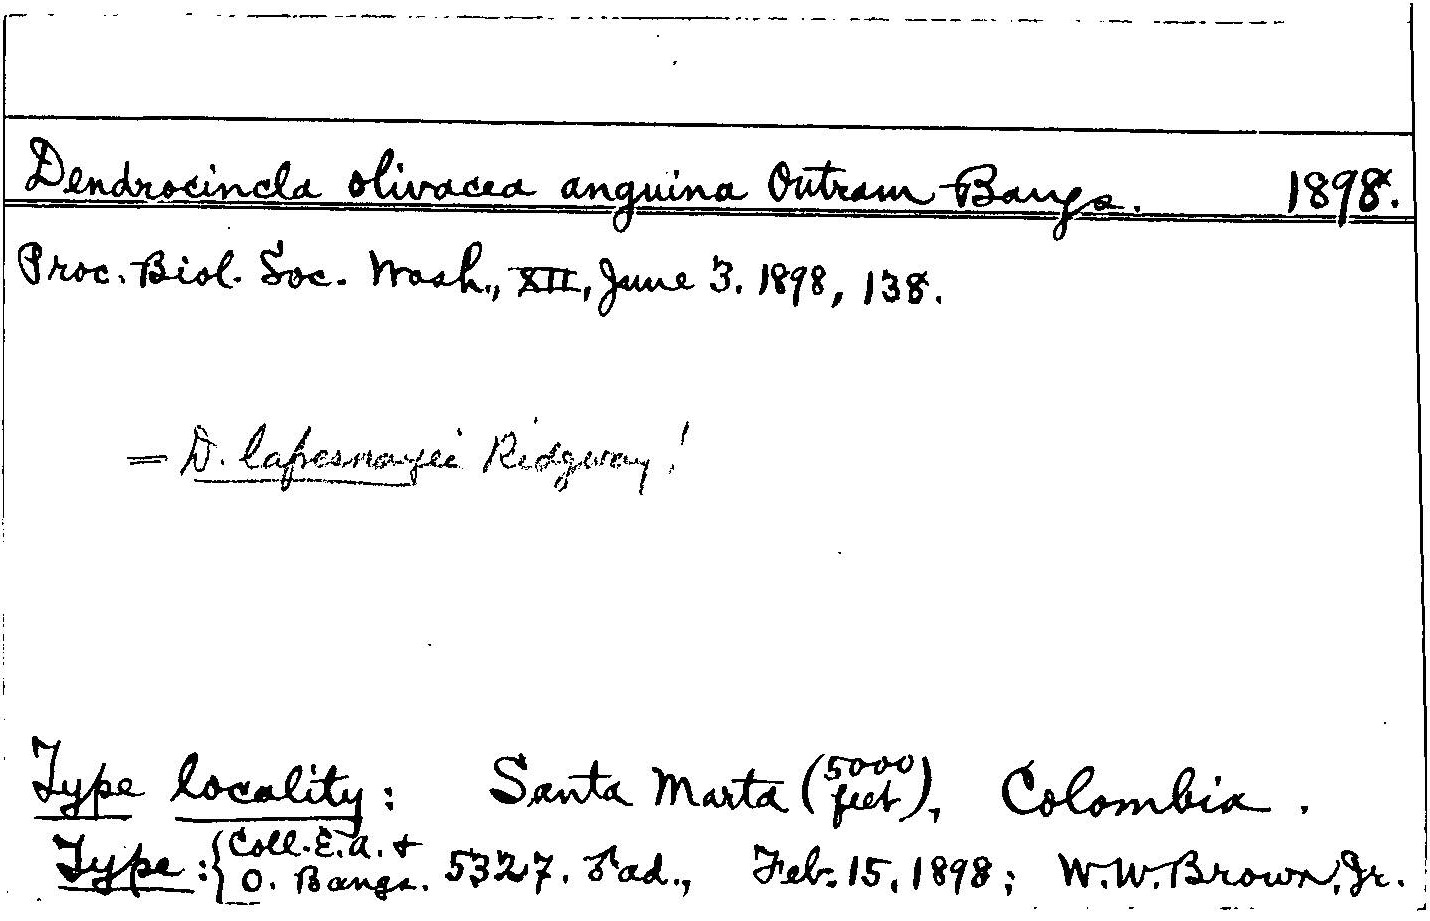 Dendrocincla olivacea anguina Outram Bangs. 1898.
Proc. Biol. Soc. Wash., XII, June 3. 1898, 138.
= D. lafresnayei Ridgway!
Type locality: Santa Marta (5000 feet), Colombia.
Type: {Coll. E. A. + O. Bangs. 5327. ♂ ad., Feb. 15, 1898; W. W. Brown, Jr.